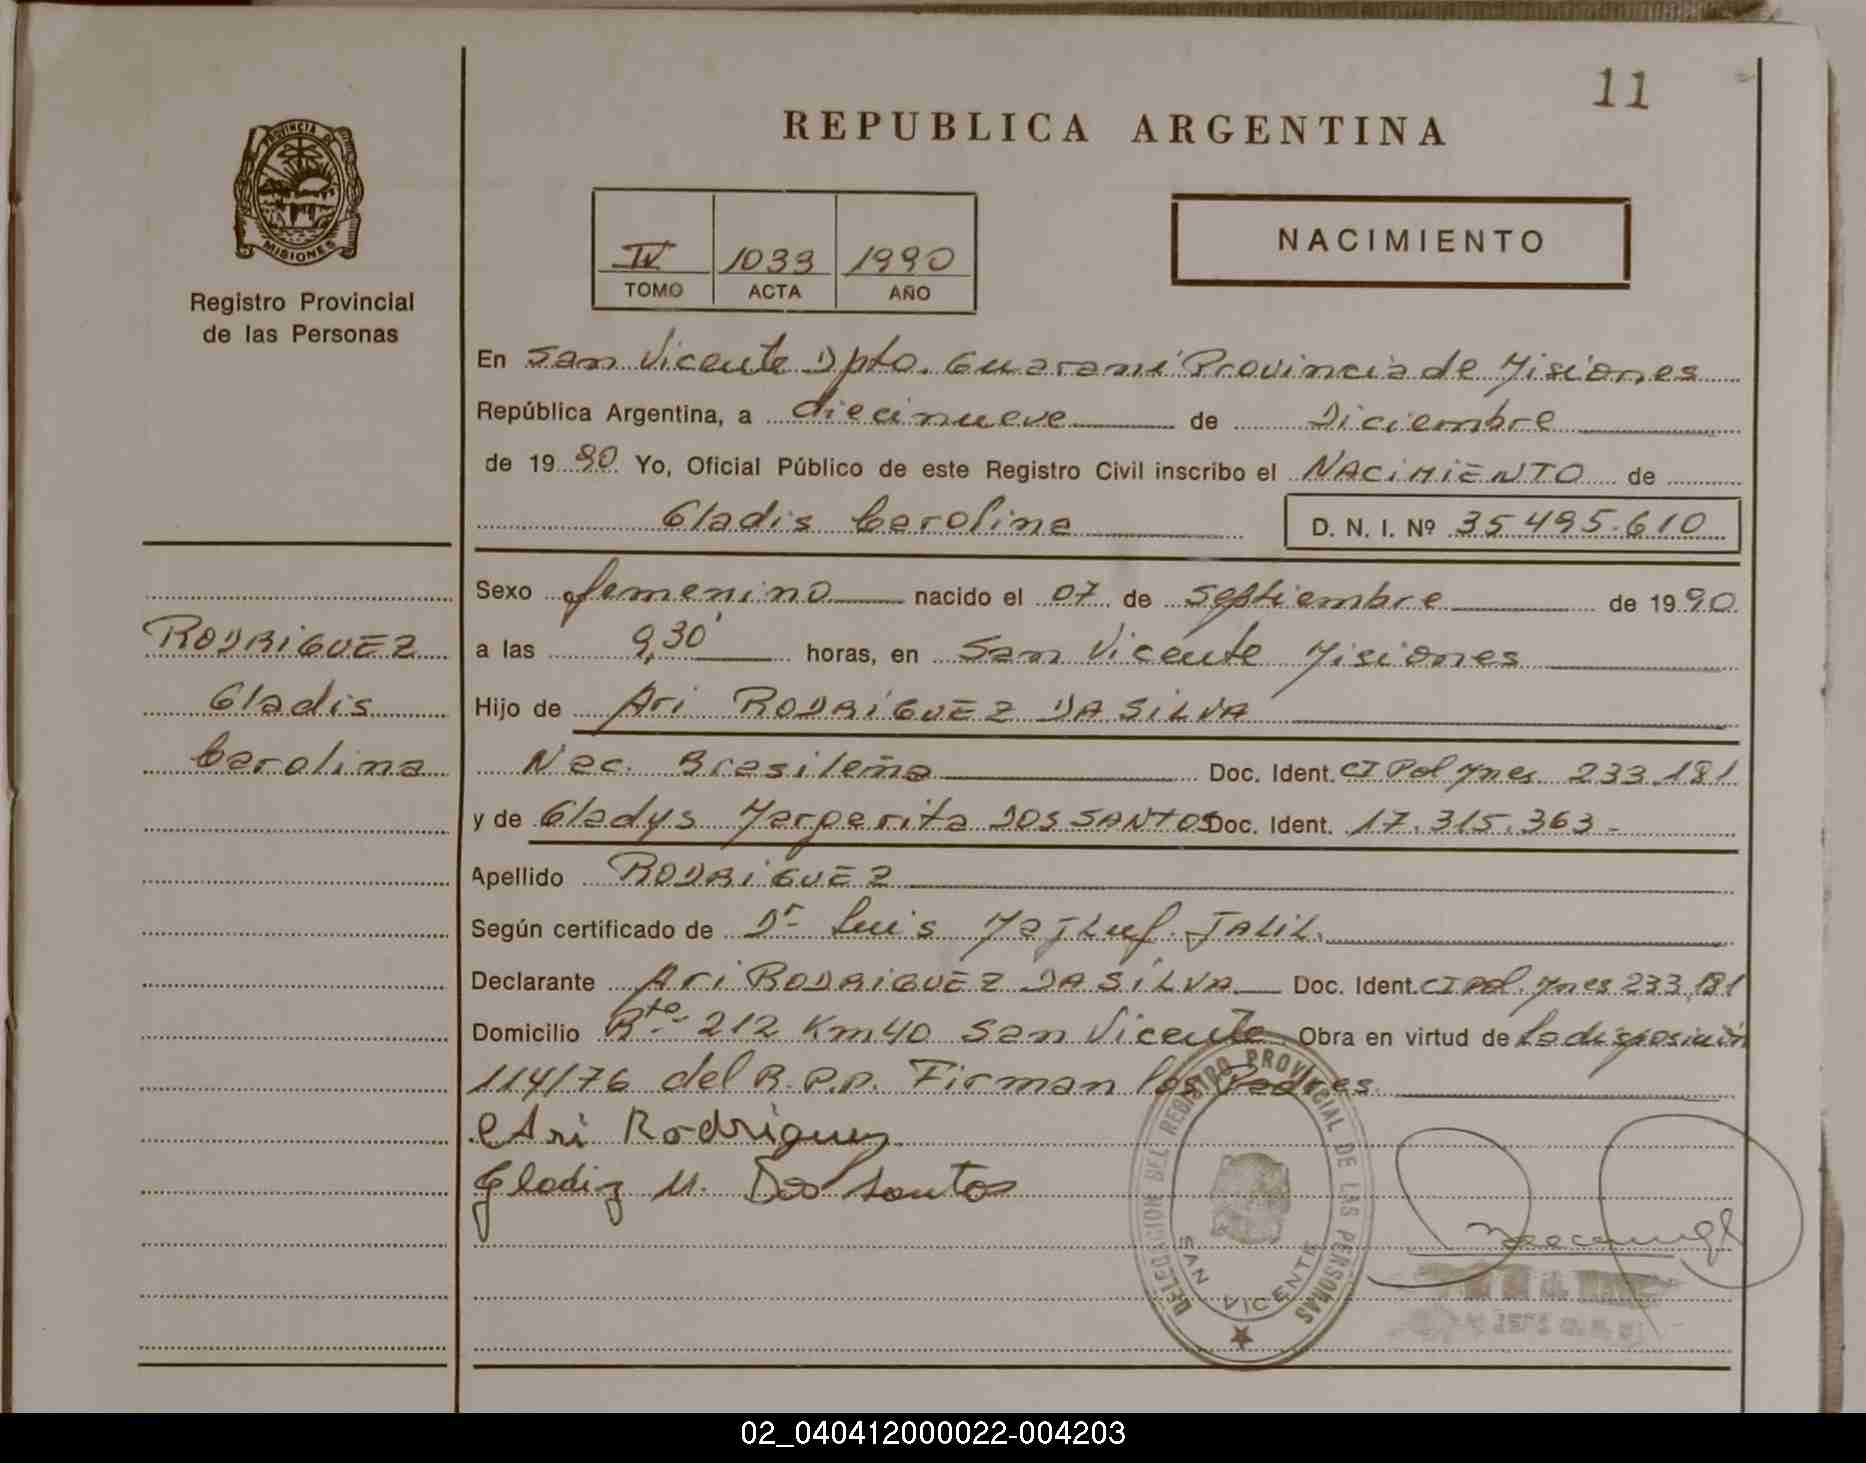 11
REPUBLICA ARGENTINA
PROVINCIA DE
MISIONES
Registro Provincial
de las Personas
IV 1033 1990
TOMO ACTA AÑO
NACIMIENTO
En San Vicente Dpto. Guaraní Provincia de Misiones
República Argentina, a diecinueve de Diciembre
de 1990 Yo, Oficial Público de este Registro Civil inscribo el NACIMIENTO de
Gladis Carolina D. N. I. Nº 35495.610
Sexo femenino nacido el 07 de Septiembre de 1990
RODRIGUEZ
Gladis
Carolina
a las 9,30' horas, en San Vicente Misiones
Hijo de Ari RODRIGUEZ DA SILVA
Nac. Brasileña Doc. Ident. CI Pol Mnes 233.181
y de Gladys Margarita DOS SANTOS Doc. Ident. 17.315.363-
Apellido RODRIGUEZ
Según certificado de Dr Luis JALIL.
Declarante Ari RODRIGUEZ DA SILVA Doc. Ident. CI Pol. Mnes 233.181
Domicilio Rta 212 Km 40 San Vicente Obra en virtud de La disposición
114/76 del R.P.P. Firman los Padres
Ari Rodriguez
Gladiz M. Dos Santos
DELEGACION DEL REGISTRO PROVINCIAL DE LAS PERSONAS
SAN VICENTE
02_040412000022-004203